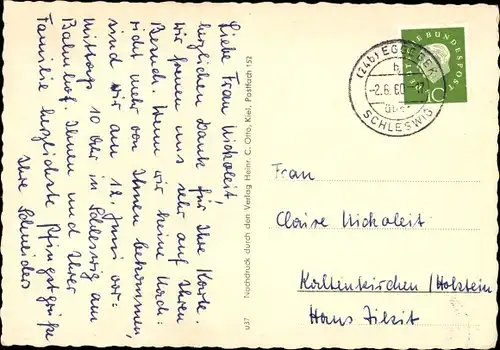 Liebe Frau Nickoleit!
herzlichen Dank für Ihre Karte.
Wir freuen uns sehr auf Ihren
Besuch. Wenn wir keine Nach-
richt mehr von Ihnen bekommen,
sind wir am 12. Juni vor-
mittags 10 Uhr in Schleswig am
Bahnhof. Ihnen und Ihrer
Familie herzlichste Pfingstgrüße
Ihre Schneider
u37 Nachdruck durch den Verlag Heinr. C. Otto, Kiel, Postfach 152
DEUTSCHE BUNDESPOST
10
(24b) EGGEBEK
-2.6.60.-17
über
SCHLESWIG
Frau
Claire Nickoleit
Kaltenkirchen/Holstein
Haus